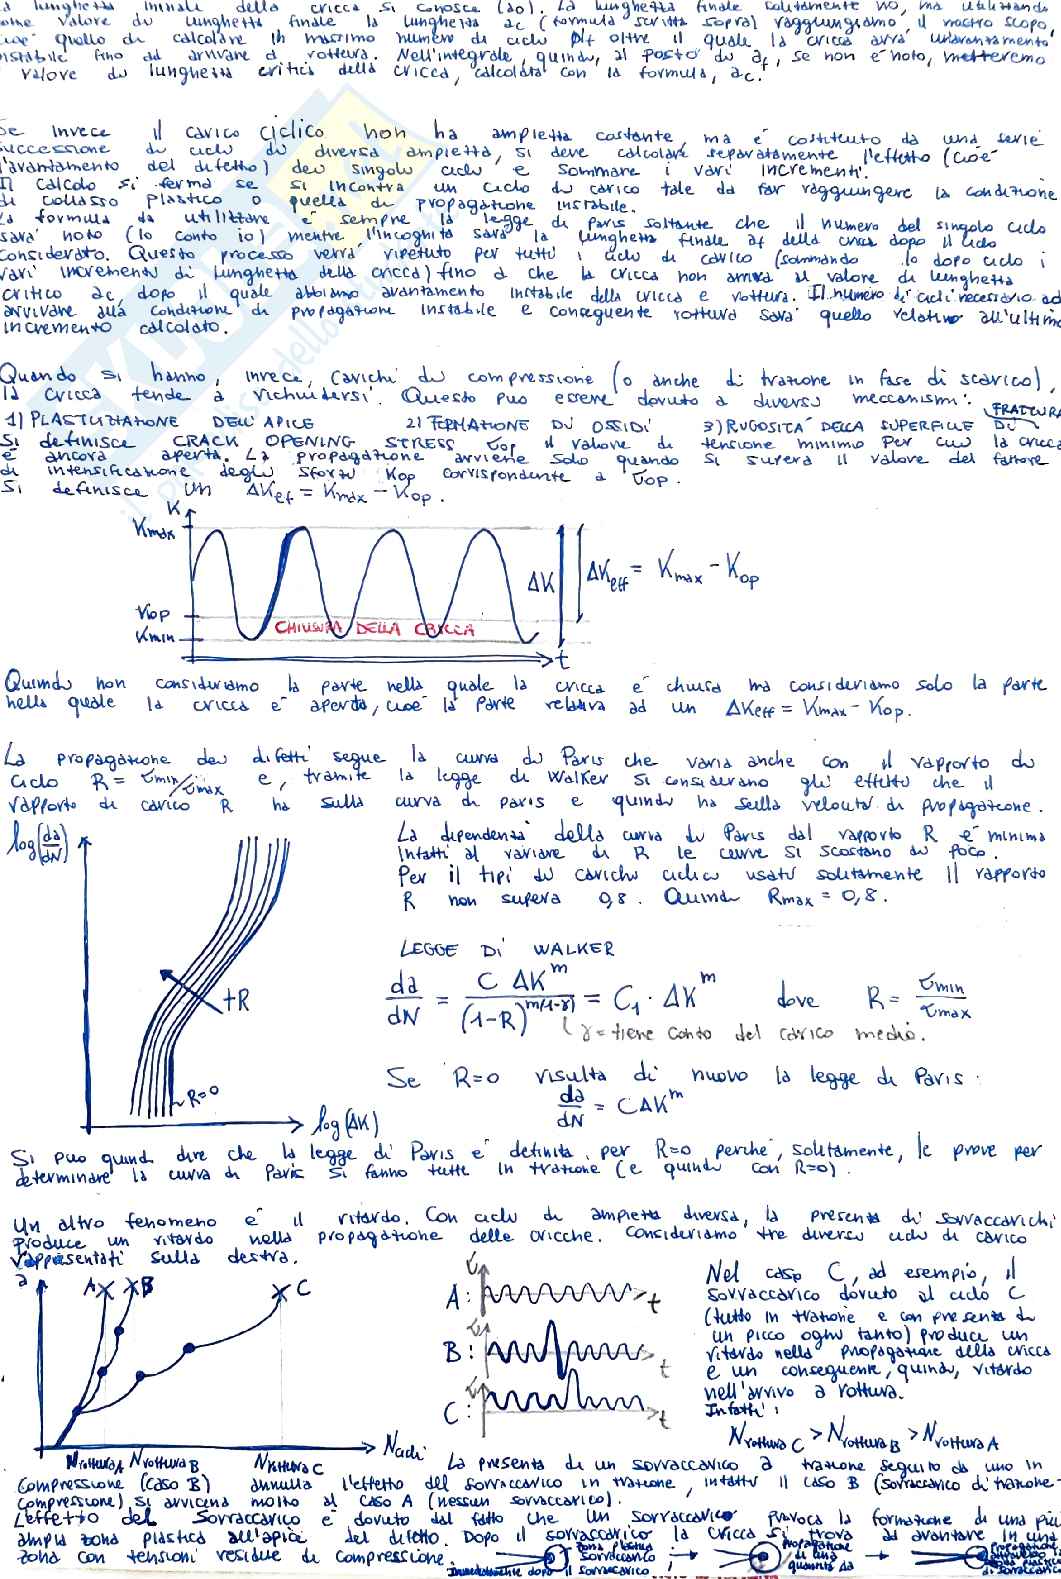 la lunghezza iniziale della cricca si conosce (a0). La lunghezza finale solitamente no, ma utilizzando
come valore di lunghezza finale la lunghezza ac (formula scritta sopra) raggiungiamo il nostro scopo,
cioè quello di calcolare il massimo numero di cicli Nf oltre il quale la cricca avrà un avanzamento
instabile fino ad arrivare a rottura. Nell'integrale, quindi, al posto di af, se non è noto, metteremo
il valore di lunghezza critica della cricca, calcolata con la formula, ac.
Se invece il carico ciclico non ha ampiezza costante, ma è costituito da una serie
successione di cicli di diversa ampiezza, si deve calcolare separatamente l'effetto (cioè
l'avanzamento del difetto) dei singoli cicli e sommare i vari incrementi.
Il calcolo si ferma se si incontra un ciclo di carico tale da far raggiungere la condizione
di collasso plastico o quella di propagazione instabile.
La formula da utilizzare è sempre la legge di Paris soltanto che il numero del singolo ciclo
sarà noto (lo conto io) mentre l'incognita sarà la lunghezza finale af della cricca dopo il ciclo
considerato. Questo processo verrà ripetuto per tutti i cicli di carico (sommando dopo ciclo i
vari incrementi di lunghezza della cricca) fino a che la cricca non arriva al valore di lunghezza
critico ac, dopo il quale abbiamo avanzamento instabile della cricca e rottura. Il numero di cicli necessario ad
arrivare alla condizione di propagazione instabile e conseguente rottura sarà quello relativo all'ultimo
incremento calcolato.
Quando si hanno, invece, carichi di compressione (o anche di trazione in fase di scarico),
la cricca tende a richiudersi. Questo può essere dovuto a diversi meccanismi:
1) PLASTICIZZAZIONE DELL'APICE 2) FORMAZIONE DI OSSIDI 3) RUGOSITÀ DELLA SUPERFICIE DI FRATTURA
Si definisce CRACK OPENING STRESS σop il valore di tensione minimo per cui la cricca
è ancora aperta. La propagazione avviene solo quando si supera il valore del fattore
di intensificazione degli sforzi Kop corrispondente a σop.
Si definisce un ΔKef = Kmax - Kop.
K
Kmax
Kop
Kmin
CHIUSURA DELLA CRICCA
t
ΔK
ΔKeff = Kmax - Kop
Quindi non consideriamo la parte nella quale la cricca è chiusa ma consideriamo solo la parte
nella quale la cricca è aperta, cioè la parte relativa ad un ΔKeff = Kmax - Kop.
La propagazione dei difetti segue la curva di Paris che varia anche con il rapporto di
ciclo R = σmin/σmax e, tramite la legge di Walker si considerano gli effetti che il
rapporto di carico R ha sulla curva di Paris e quindi ha sulla velocità di propagazione.
log(da/dN)
+R
R=0
log(ΔK)
La dipendenza della curva di Paris dal rapporto R è minima
infatti al variare di R le curve si scostano di poco.
Per il tipi di carichi ciclici usati solitamente il rapporto
R non supera 0,8. Quindi Rmax = 0,8.
LEGGE DI WALKER
da/dN = C ΔK^m / (1-R)^m(1-γ) = C1 · ΔK^m dove R = σmin/σmax
γ = tiene conto del carico medio.
Se R=0 risulta di nuovo la legge di Paris:
da/dN = CΔK^m
Si può quindi dire che la legge di Paris è definita per R=0 perché, solitamente, le prove per
determinare la curva di Paris si fanno tutte in trazione (e quindi con R=0).
Un altro fenomeno è il ritardo. Con cicli di ampiezza diversa, la presenza di sovraccarichi
produce un ritardo nella propagazione delle cricche. Consideriamo tre diversi cicli di carico
rappresentati sulla destra.
a
A B C
Nrottura A Nrottura B Nrottura C
Ncicli
A: σ t
B: σ t
C: σ t
Nel caso C, ad esempio, il
sovraccarico dovuto al ciclo C
(tutto in trazione e con presenza di
un picco ogni tanto) produce un
ritardo nella propagazione della cricca
e un conseguente, quindi, ritardo
nell'arrivo a rottura.
Infatti:
Nrottura C > Nrottura B > Nrottura A
La presenza di un sovraccarico a trazione seguito da uno in
compressione (caso B) annulla l'effetto del sovraccarico in trazione, infatti il caso B (sovraccarico di trazione-
compressione) si avvicina molto al caso A (nessun sovraccarico).
L'effetto del sovraccarico è dovuto dal fatto che un sovraccarico provoca la formazione di una più
ampia zona plastica all'apice del difetto. Dopo il sovraccarico la cricca si trova ad avanzare in una
zona con tensioni residue di compressione.
zona plastica sovraccarico
Immediatamente dopo il sovraccarico
Propagazione di una quantità Δa